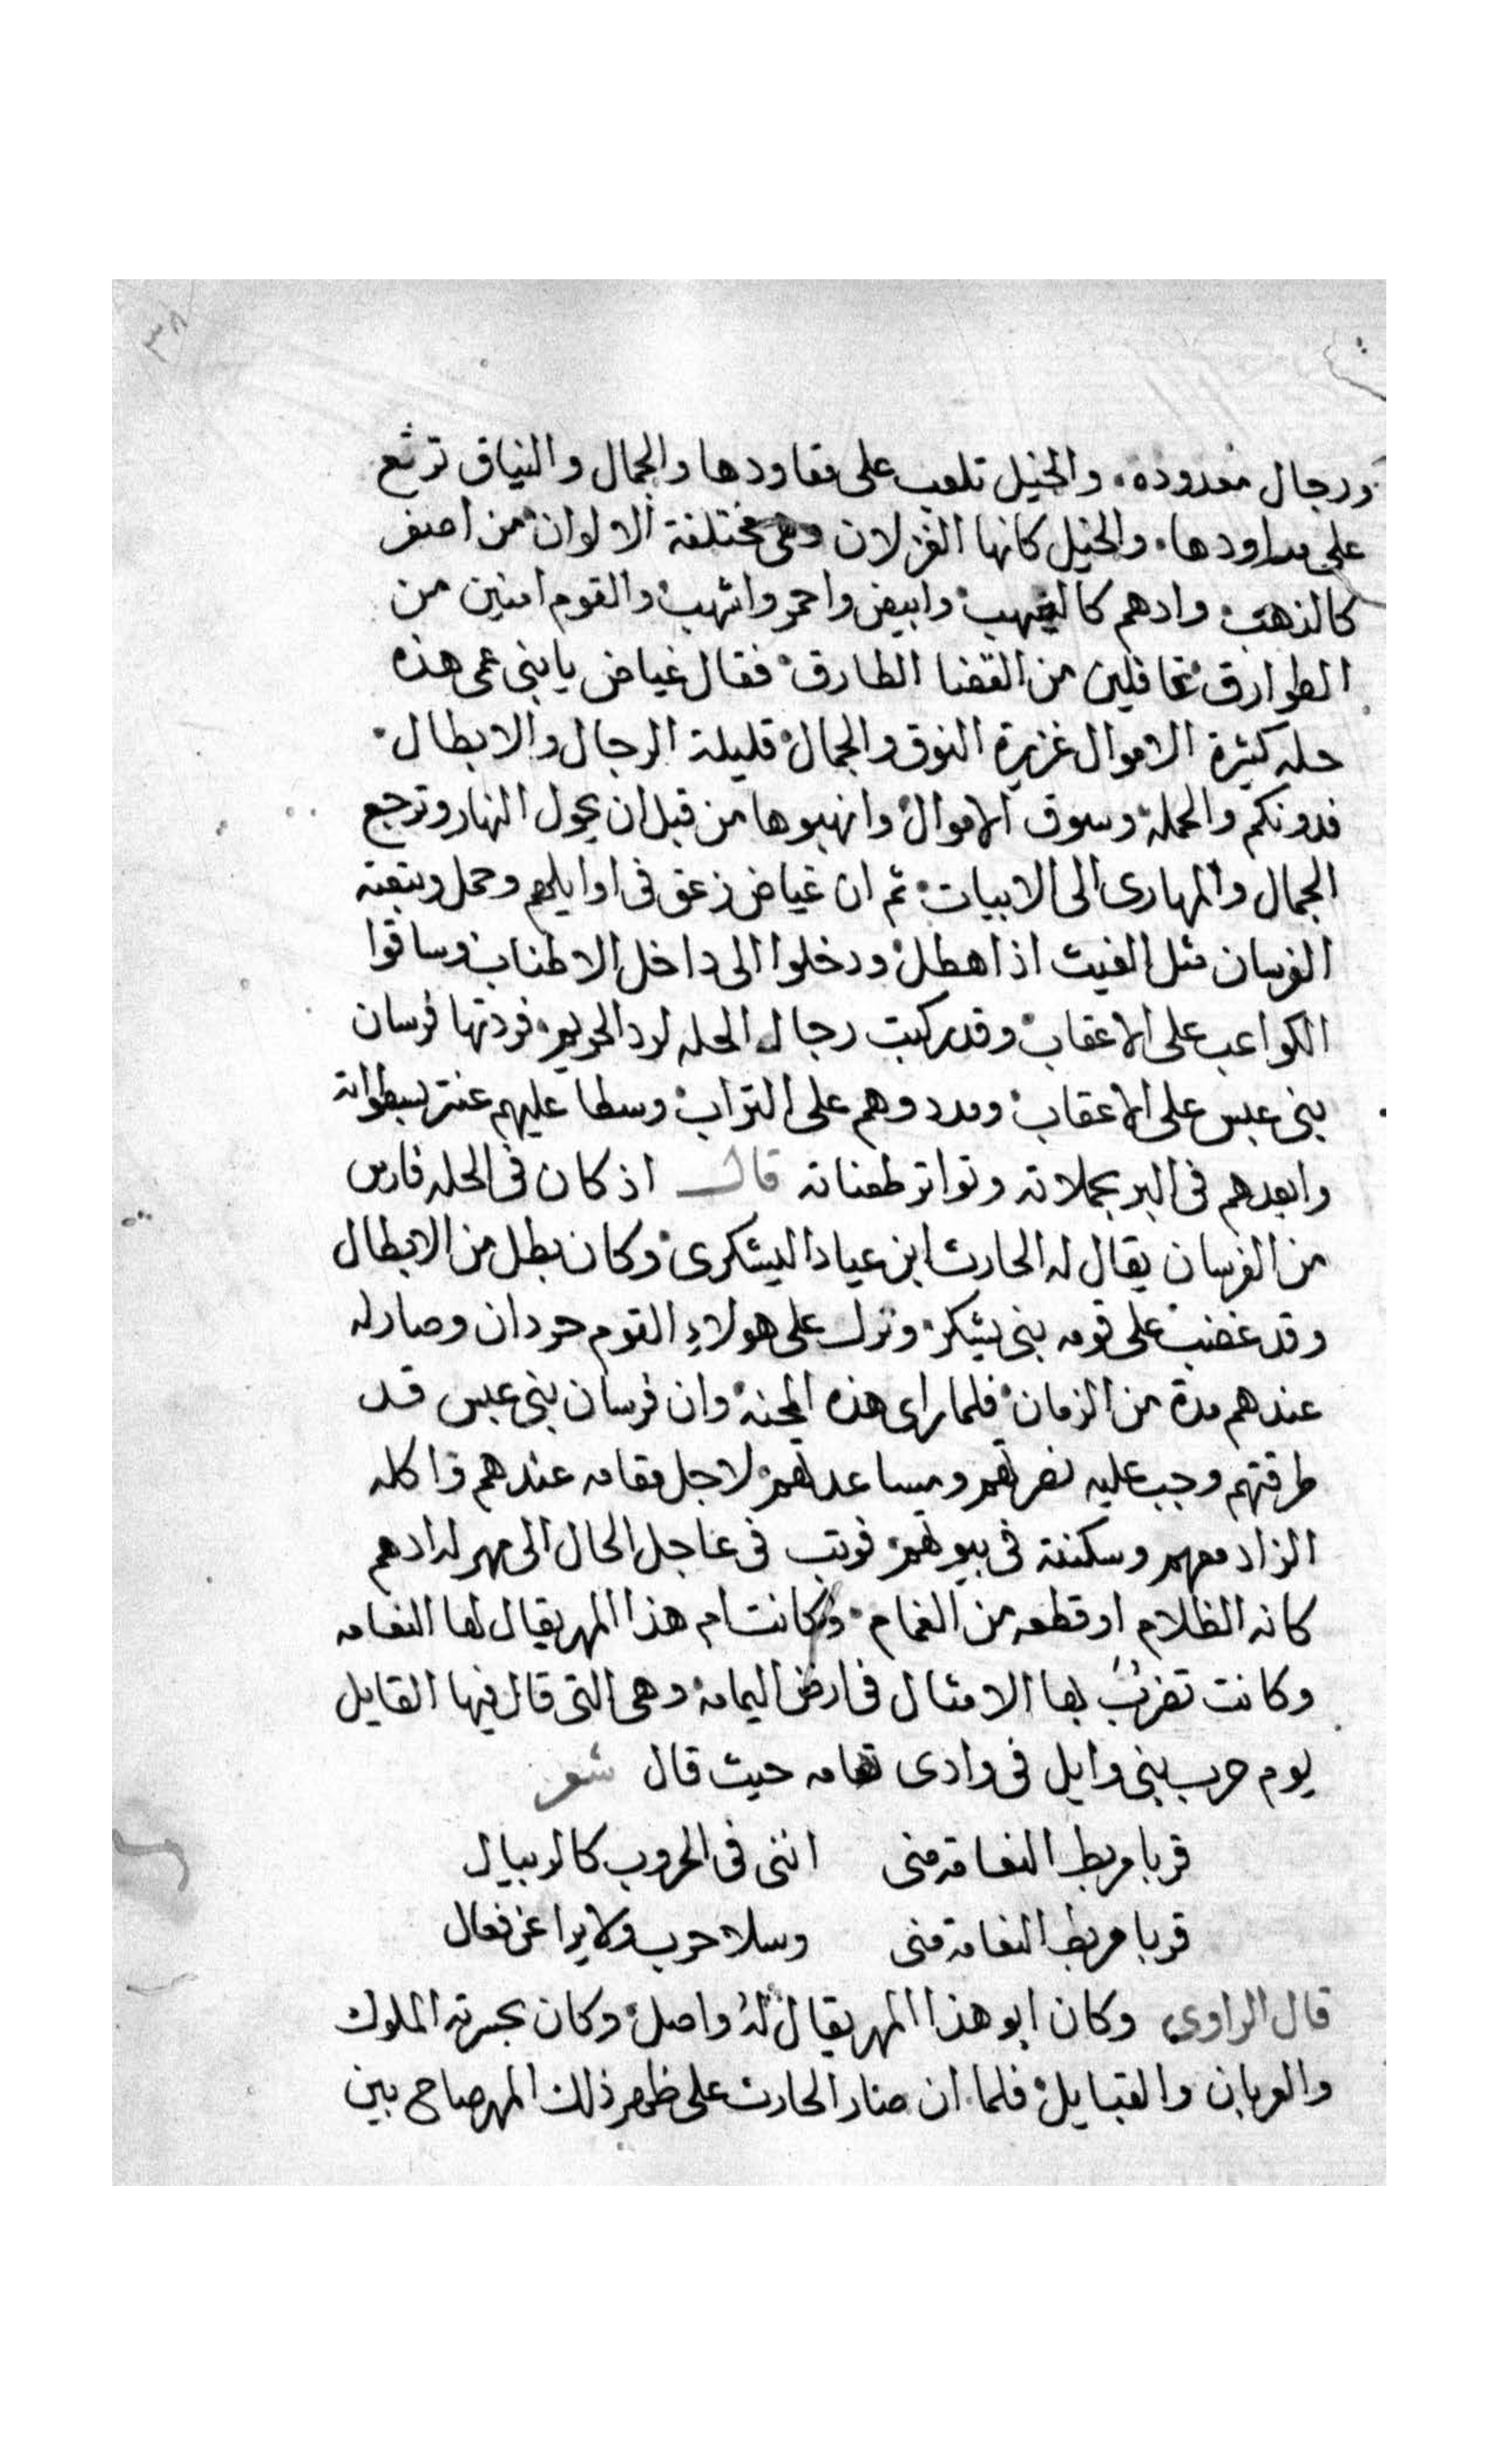 ٣٨
ورجال معدودة. والخيل تلعب على مقاودها والجمال والنياق ترتع
على مداودها. والخيل كانها الغزلان وهى مختلفة الالوان من اصفر
كالذهب وادهم كالغيهب وابيض واحمر واشهب والقوم امنين من
الطوارق غافلين من القضا الطارق فقال غياض يا بنى عمى هذه
حله كثيرة الاموال غزيرة النوق والجمال قليلة الرجال والابطال
فدونكم والحملة وسوق الاموال وانهبوها من قبل ان يحول النهار وترجع
الجمال والمهارى الى الابيات ثم ان غياض زعق فى اوايلهم وحمل وتبعته
الفرسان مثل الغيث اذا هطل ودخلوا الى داخل الاطناب وساقوا
الكواعب على الاعقاب وقد ركبت رجال الحله لرد الحريم فردتها فرسان
بنى عبس على الاعقاب ومددوهم على التراب وسطا عليهم عنتر بسطواته
وابعدهم فى البر بحملاته وتواتر طعناته قال اذ كان فى الحله فارس
من الفرسان يقال له الحارث ابن عياد اليشكرى وكان بطل من الابطال
وقد غضب على قومه بنى يشكر ونزل على هولاء القوم حردان وصار له
عندهم مدة من الزمان فلما راى هذه المحنة وان فرسان بنى عبس قد
طرقتهم وجب عليه نصرتهم ومساعدتهم لاجل مقامه عندهم واكله
الزاد معهم وسكنته فى بيوتهم فوثب فى عاجل الحال الى مهر له ادهم
كانه الظلام او قطعه من الغمام وكانت ام هذا المهر يقال لها النعامه
وكانت تضرب بها الامثال فى ارض اليمامة وهى التى قال فيها القايل
يوم حرب بنى وايل فى وادى تهامه حيث قال شعر
قربا مربط النعامة منى انثنى فى الحروب كالريبال
قربا مربط النعامة منى وسلا حرب ولا يراعن فعال
قال الراوى وكان ابو هذا المهر يقال له واصل وكان بحسرته الملوك
والعربان والقبايل فلما ان صار الحارث على ظهر ذلك المهر صاح بين